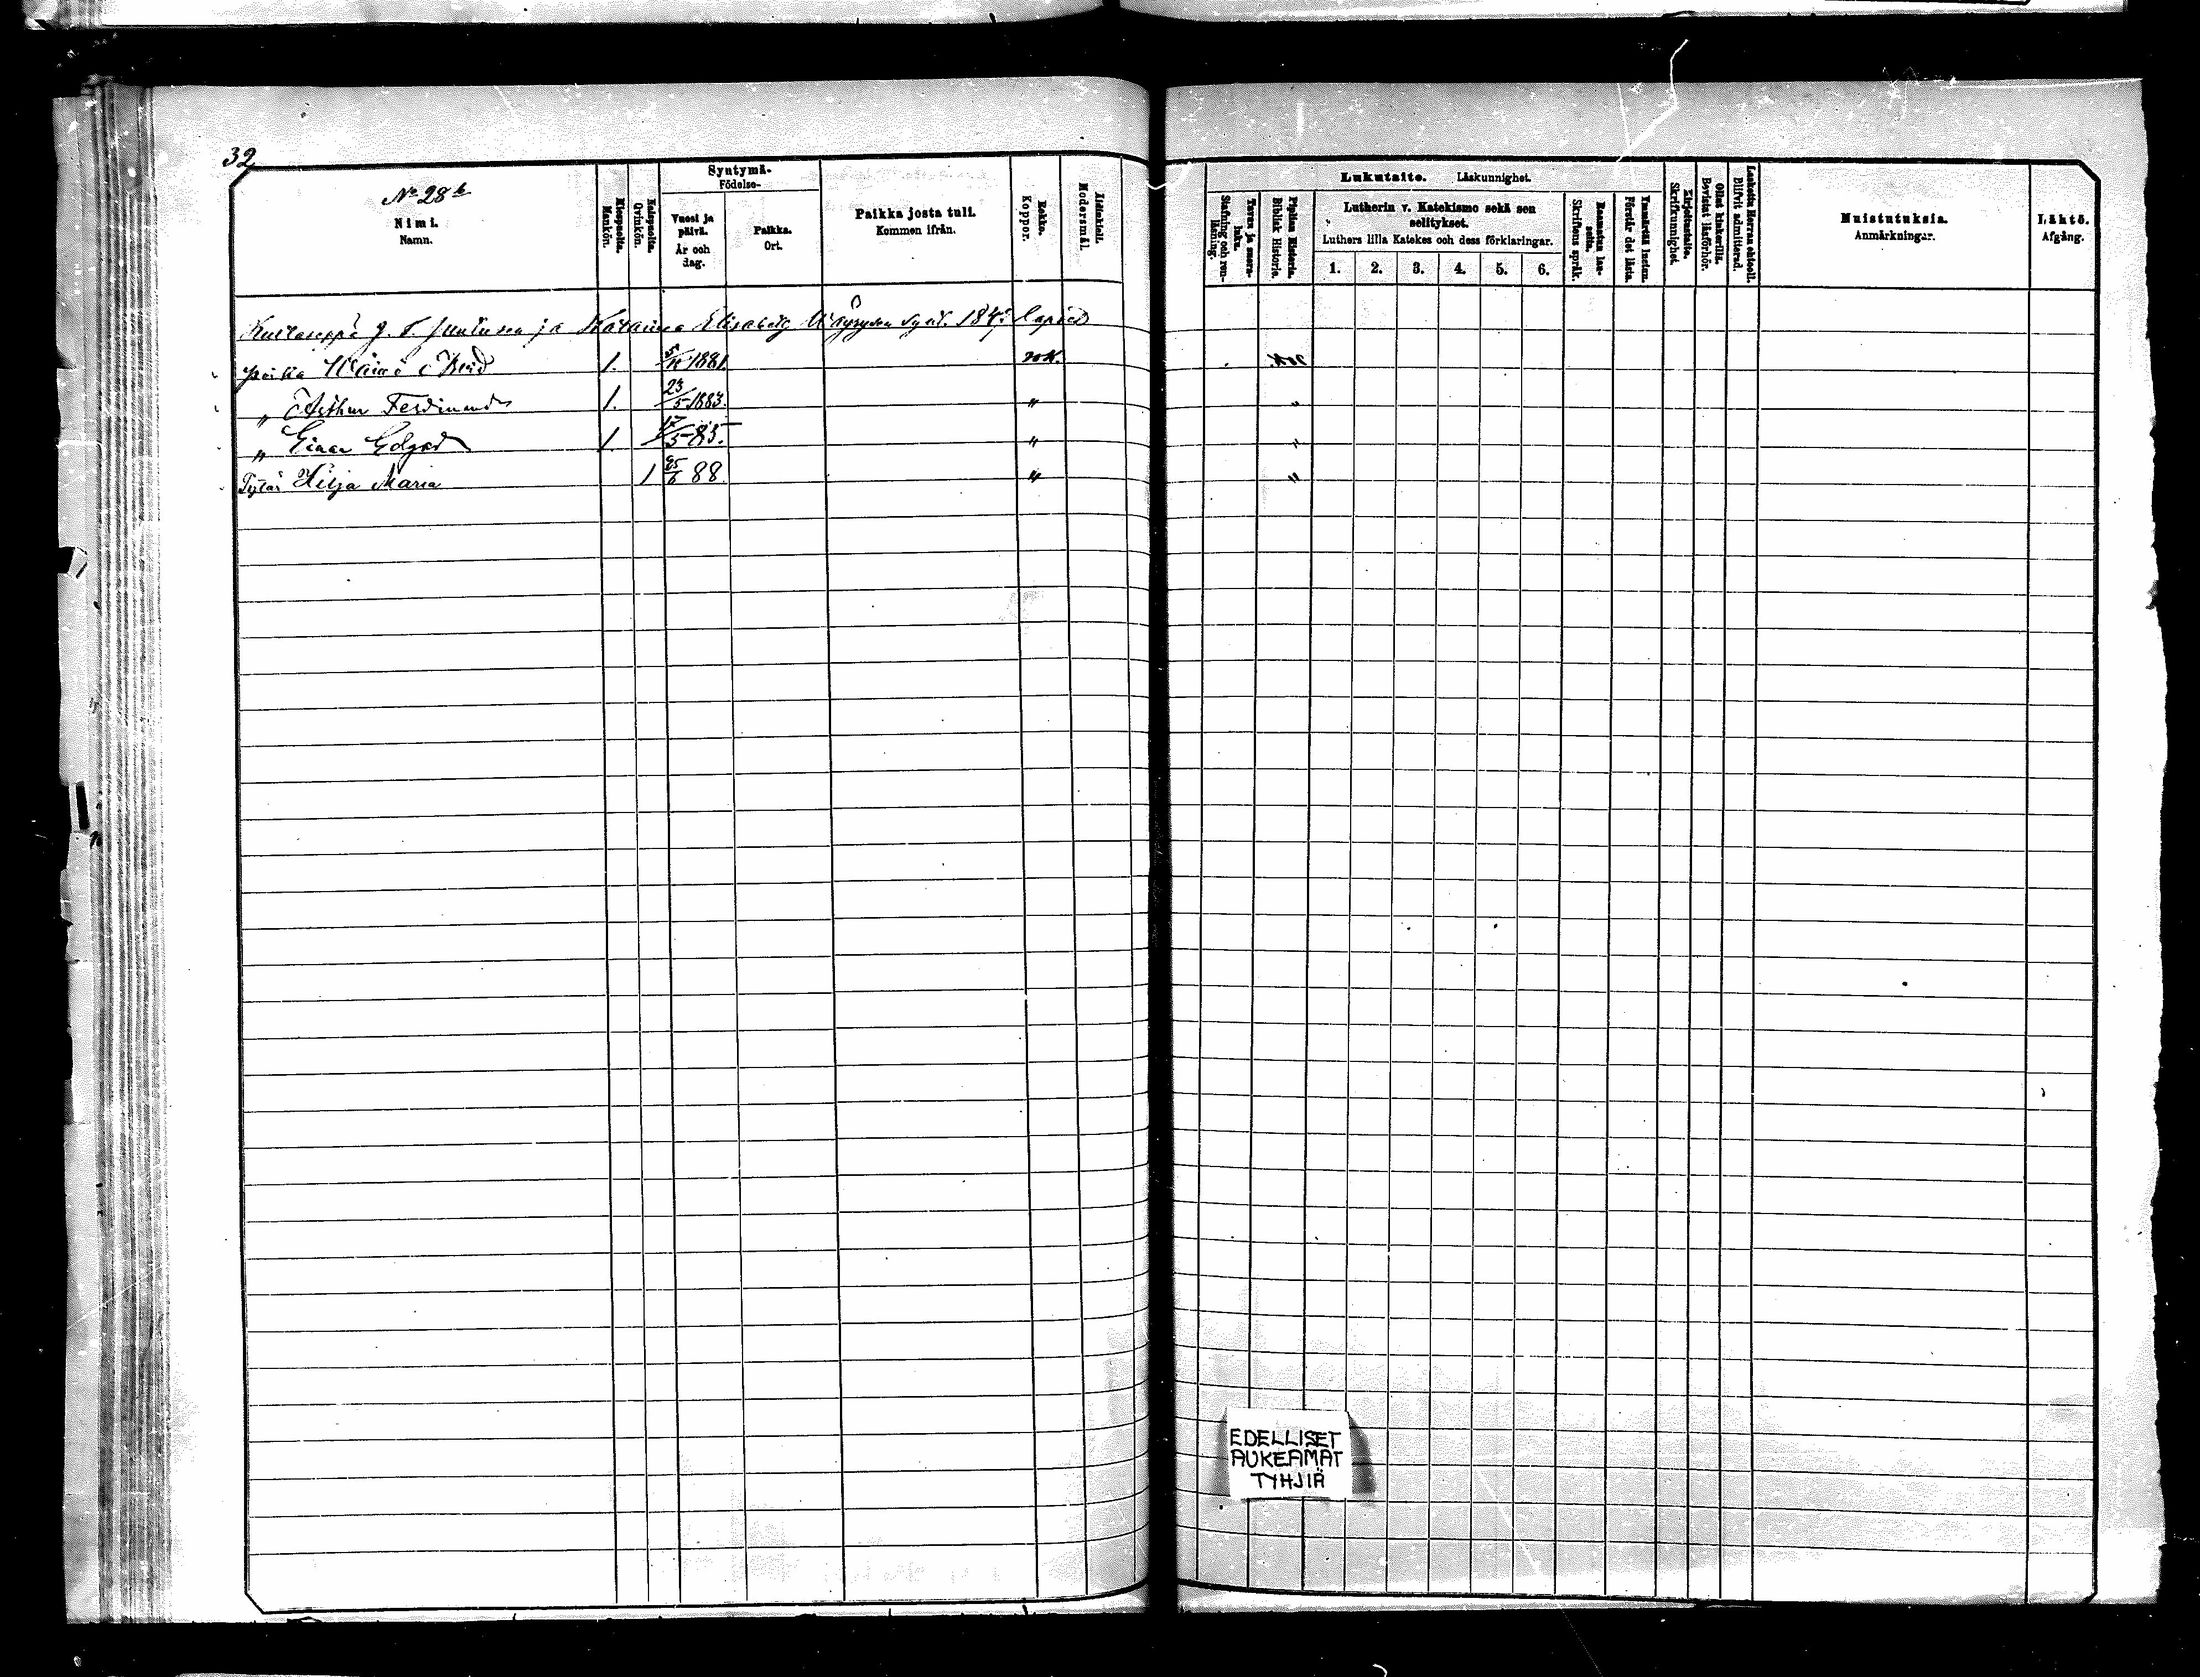 32
No 28 b
Nimi.
Namn.
Miespuolta.
Mankön.
Naispuolta.
Qvinkön.
Syntymä-
Födelse-
Vuosi ja
päivä.
År och
dag.
Paikka.
Ort.
Paikka josta tuli.
Kommen ifrån.
Rokko.
Koppor.
Äidinkieli.
Modersmål.
Kultaseppä J. F. Juntusen ja Katarina Elisabeth Väyrysen synt. lapset
poika Wäinö 1. 1881. rok.
" Arthur Ferdinand 1. 23/5 1883. "
" Einar Edgard 1. 17/5 85. "
Tytär Hilja Maria 1 25/6 88. "
Lukutaito. Läskunnighet.
Tavuu ja suora-
luku.
Stafning och ren-
läsning.
Piplian Historia.
Biblisk Historia.
Lutherin v. Katekismo sekä sen
selitykset.
Luthers lilla Katekes och dess förklaringar.
1. 2. 3. 4. 5. 6.
Raamatun lau-
seita.
Skriftens språk.
Ymmärtää lukun.
Förstår det lästa.
Kirjoitustaito.
Skrifkunnighet.
Ollut kinkerillä.
Bevistat läsförhör.
Laskettu Herran ehtool.
Blifvit admitterad.
Muistutuksia.
Anmärkningar.
Lähtö.
Afgång.
EDELLISET
AUKEAMAT
TYHJIÄ